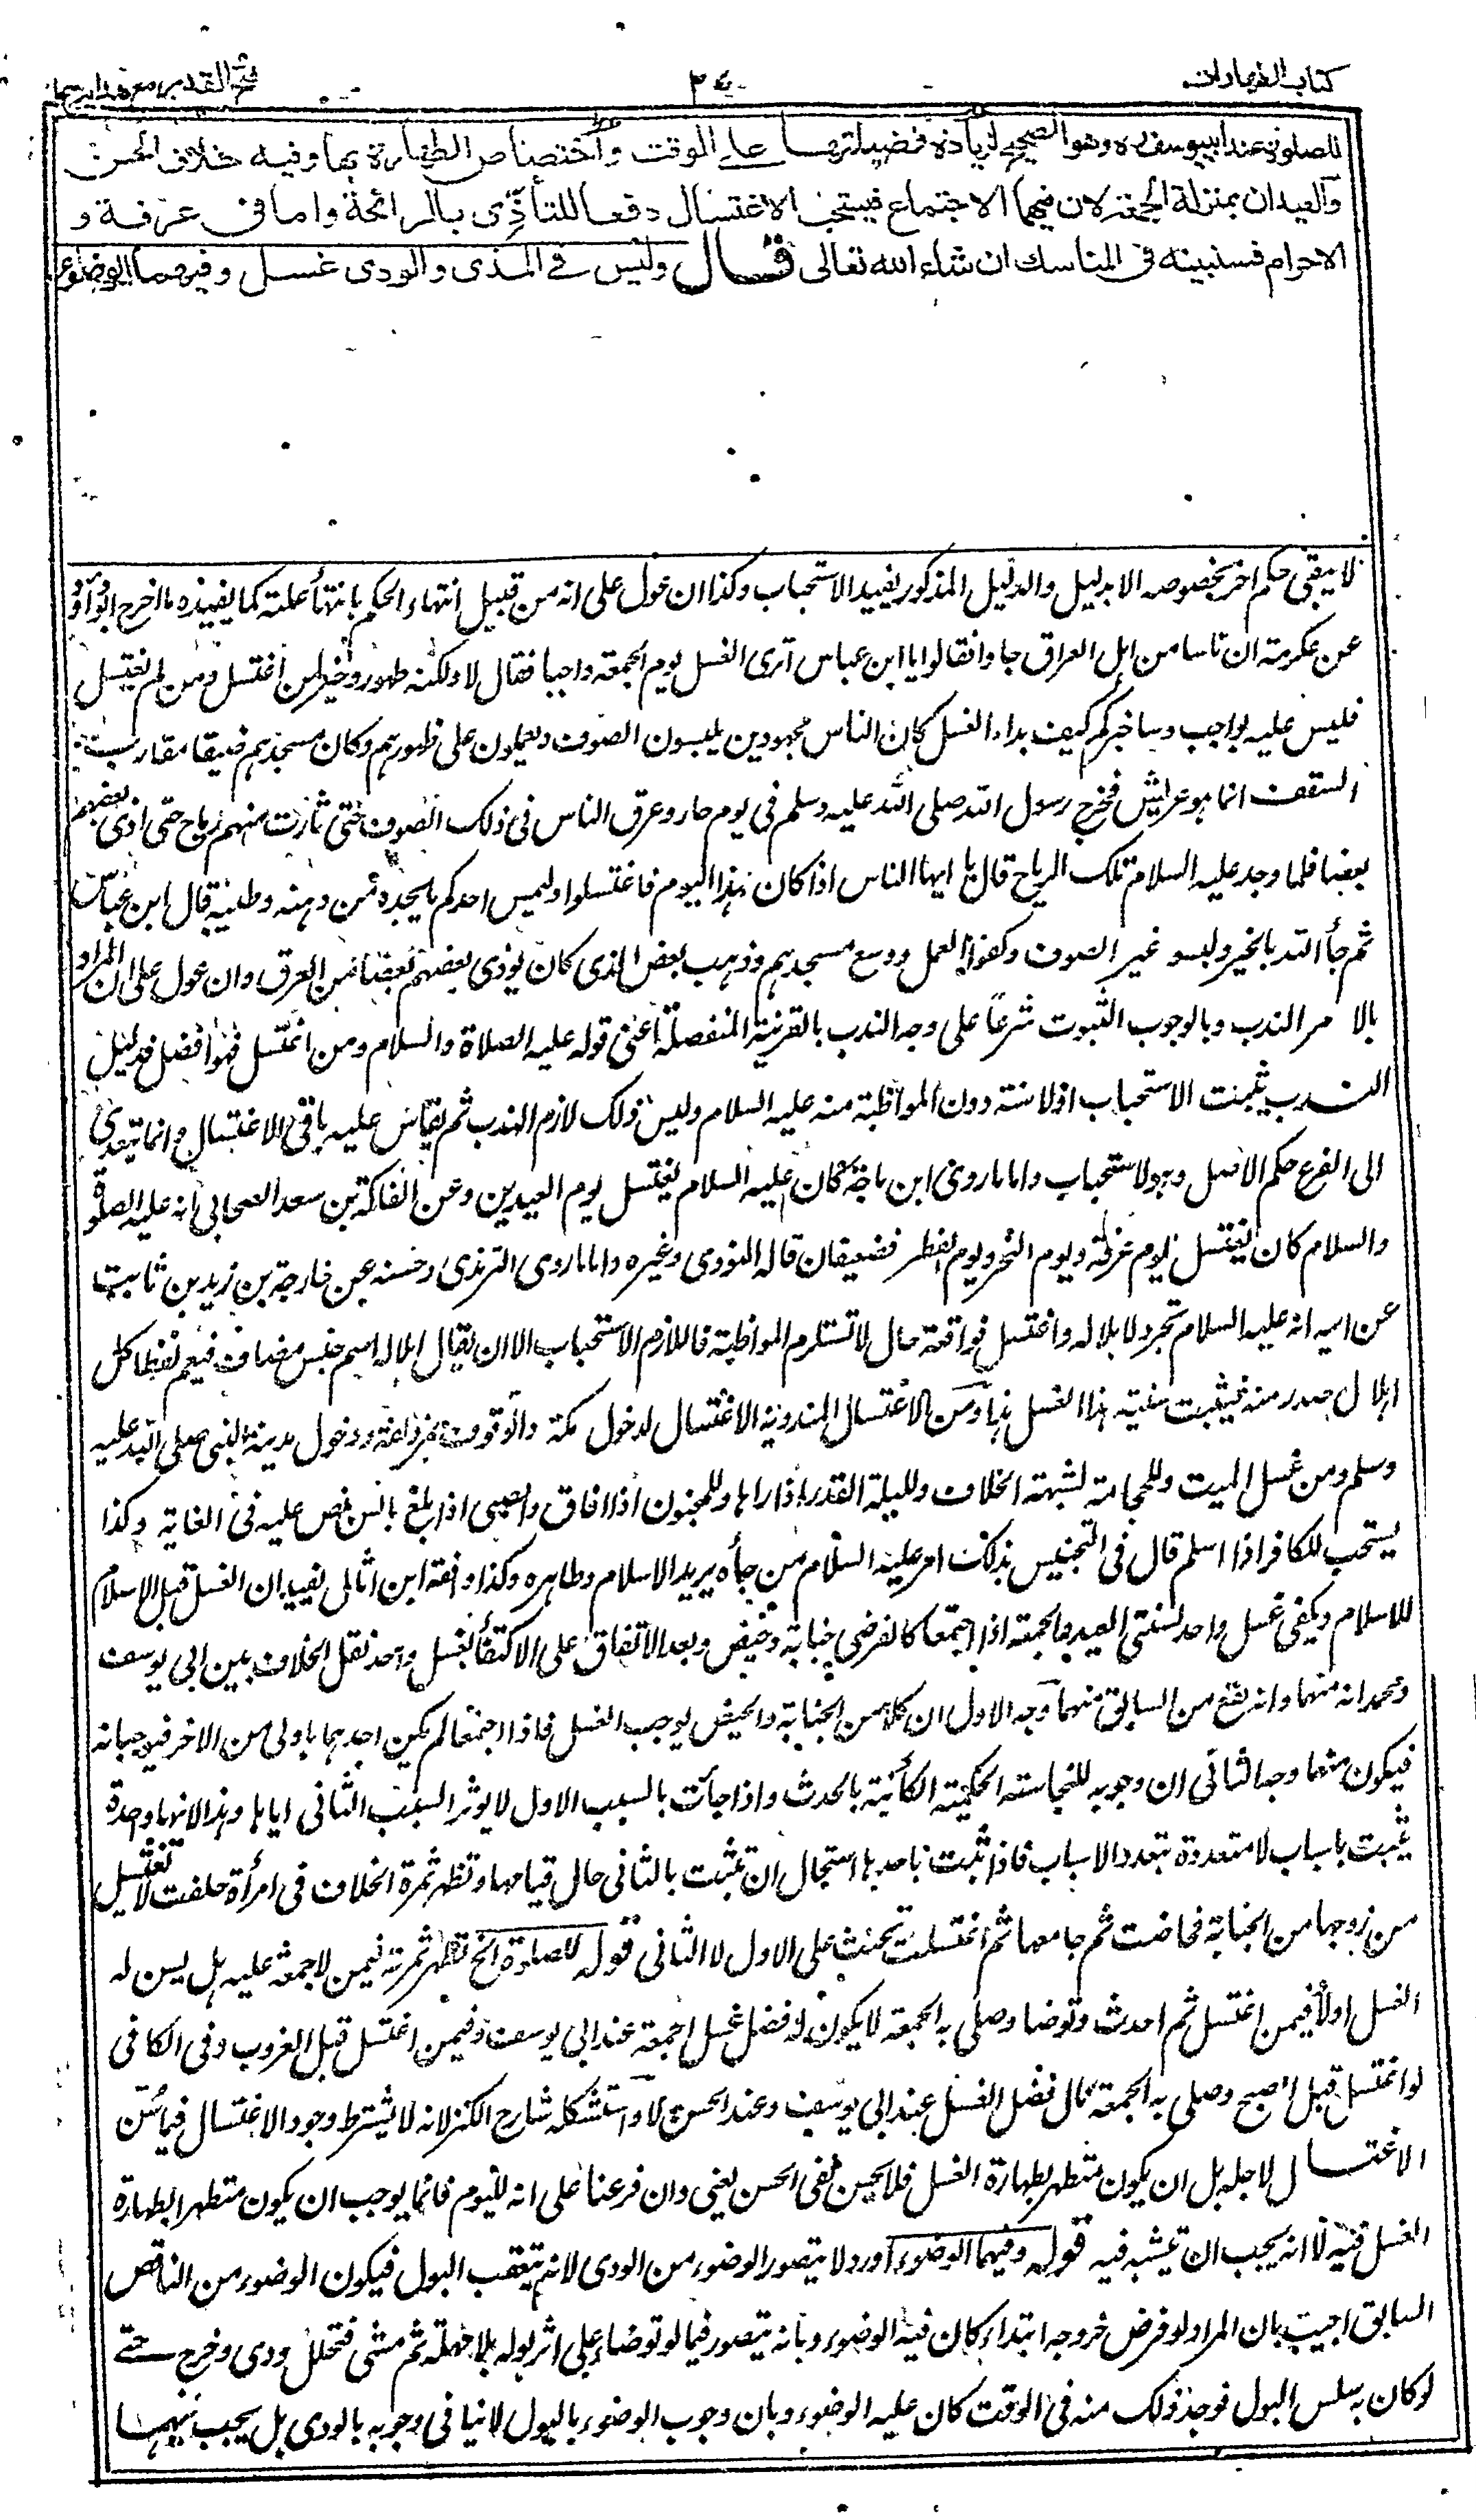 كتاب الطهارات
فتح القدير مع هداية
للصلوة عند ابي يوسف ره وهو الصحيح لزيادة فضيلتها على الوقت واختصاص الطهارة بها وفيه خلاف الحسن
والعيدان بمنزلة الجمعة لان فيهما الاجتماع فيستحب الاغتسال دفعا للتأذي بالرائحة واما في عرفة و
الاحرام فسنبينه في المناسك ان شاء الله تعالى قال وليس في المذى والودى غسل وفيهما الوضوء
لا يبقى حكم اخر بخصوصه الا بدليل والدليل المذكور يفيد الاستحباب وكذا ان عول على انه من قبيل انتهاء الحكم بانتهاء علته كما يفيده ما اخرج ابو داؤد
عن عكرمة ان ناسا من اهل العراق جاوا فقالوا يا ابن عباس اترى الغسل يوم الجمعة واجبا فقال لا ولكنه طهور وخير لمن اغتسل ومن لم يغتسل
فليس عليه بواجب وساخبركم كيف بداء الغسل كان الناس مجهودين يلبسون الصوف ويعملون على ظهورهم وكان مسجدهم ضيقا مقارب
السقف انما هو عريش فخرج رسول الله صلى الله عليه وسلم في يوم حار وعرق الناس في ذلك الصوف حتى ثارت منهم رياح حتى اذى بعضهم
بعضا فلما وجد عليه السلام تلك الرياح قال يا ايها الناس اذا كان هذا اليوم فاغتسلوا وليمس احدكم ما يجده من دهنه وطيبه قال ابن عباس
ثم جاء الله بالخير ولبسو غير الصوف وكفوا العمل ووسع مسجدهم وذهب بعض الذي كان يوذى بعضهم بعضا من العرق وان عول على ان المراد
بالامر الندب وبالوجوب الثبوت شرعاً على وجه الندب بالقرينة المنفصلة اعنى قوله عليه الصلاة والسلام ومن اغتسل فهو افضل فدليل
الندب يثبت الاستحباب اذ لا سنة دون المواظبة منه عليه السلام وليس ذلك لازم الندب ثم يقاس عليه باقي الاغتسال وانما يتعدى
الى الفرع حكم الاصل وهو الاستحباب واما ما روى ابن ماجة كان عليه السلام يغتسل يوم العيدين وعن الفاكه بن سعد الصحابي انه عليه الصلوة
والسلام كان يغتسل يوم عرفة ويوم النحر ويوم الفطر فضعيفان قاله النووى وغيره واما ما روى الترمذى وحسنه عن خارجة بن زيد بن ثابت
عن ابيه انه عليه السلام تجرد لاهلاله واغتسل فواقعة حال لا تستلزم المواظبة فاللازم الاستحباب الا ان يقال اهلاله اسم جنس مضاف فيعم لفظا كل
اهلال صدر منه فيثبت سنية هذا الغسل هذا ومن الاغتسال المندوبة الاغتسال لدخول مكة والوقوف بمزدلفة ودخول مدينة النبي صلى الله عليه
وسلم ومن غسل الميت وللحجامة لشبهة الخلاف ولليلة القدر اذا راها وللمجنون اذا افاق والصبي اذا بلغ بالسن نص عليه في الغاية وكذا
يستحب للكافر اذا اسلم قال في التجنيس بذلك امر عليه السلام من جاءه يريد الاسلام وظاهره وكذا واقعة ابن اثال يفيد ان الغسل قبل الاسلام
للاسلام ويكفى غسل واحد لسنتى العيد والجمعة اذا اجتمعا كالفرضى جنابة وحيض وبعد الاتفاق على الاكتفاء بغسل واحد نقل الخلاف بين ابي يوسف
ومحمد انه منهما وانه يقع من السابق منهما وجه الاول ان كلا من الجنابة والحيض يوجب الغسل فاذا اجتمعا لم يكن احدهما باولى من الاخر فيوجبانه
فيكون منهما وجه الثاني ان وجوبه للنجاسة الحكمية الكائنة بالحدث واذا جائت بالسبب الاول لا يوثر السبب الثاني اياها وهذا لانها واحدة
يثبت باسباب لا متعددة بتعدد الاسباب فاذا ثبت باحدها استحال ان تثبت بالثاني حال قيامها وتظهر ثمرة الخلاف في امرأة حلفت لا تغتسل
من زوجها من الجنابة فحاضت ثم جامعها ثم اغتسلت تحنث على الاول لا الثاني قوله للصلوة الخ تظهر ثمرته فيمن لا جمعة عليه هل يسن له
الغسل اولا وفيمن اغتسل ثم احدث وتوضا وصلى به الجمعة لا يكون له فضل غسل الجمعة عند ابي يوسف وفيمن اغتسل قبل الغروب وفي الكافي
لو اغتسل قبل الصبح وصلى به الجمعة نال فضل الغسل عند ابي يوسف وعند الحسن لا واستشكله شارح الكنز لانه لا يشترط وجود الاغتسال فيما سن
الاغتسال لاجله بل ان يكون متطهر بطهارة الغسل فلا يحسن نفى الحسن يعني وان فرعنا على انه لليوم فانما يوجب ان يكون متطهر الطهارة
الغسل فيه لا انه يجب ان ينشئه فيه قوله وفيهما الوضوء اورد لا يتصور الوضوء من الودى لانه يتعقب البول فيكون الوضوء من الناقض
السابق اجيب بان المراد لو فرض خروجه ابتداء كان فيه الوضوء وبانه يتصور فيما لو توضاء على اثر بوله بلا مهلة ثم مشى فتحلل ودى وخرج حتى
لو كان به سلس البول فوجد ذلك منه في الوقت كان عليه الوضوء وبان وجوب الوضوء بالبول لا ينافي وجوبه بالودى بل يجب بهما